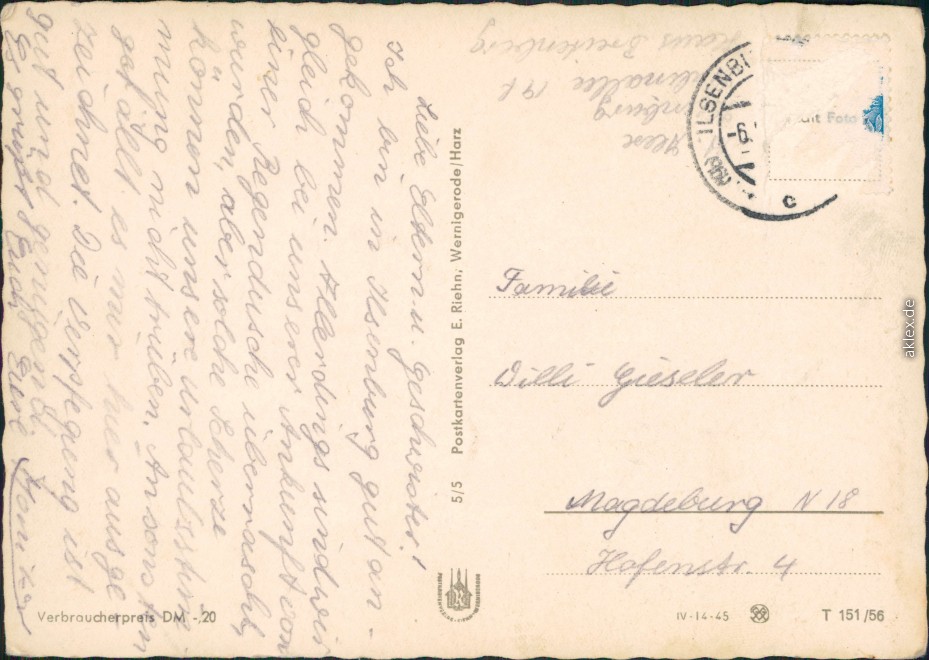 Liebe Eltern u. Geschwister!
Ich bin in Ilsenburg gut an-
gekommen. Allerdings sind wir
gleich bei unserer Ankunft von
einer Regendusche überrascht
wurden, aber solche Scherze
können unsere Urlaubsstim-
mung nicht trüben. Ansonsten
gefällt es mir hier ausge-
zeichnet. Die Verpflegung ist
gut und genügend.
Es grüßt Euch Eure Monika
Haus Breitenberg
ILSENBU
c
Foto
Familie
Willi Gieseler
Magdeburg N 18
Hafenstr. 4
5/5 Postkartenverlag E. Riehn, Wernigerode/Harz
Verbraucherpreis DM -,20
IV-14-45
T 151/56
aklex.de